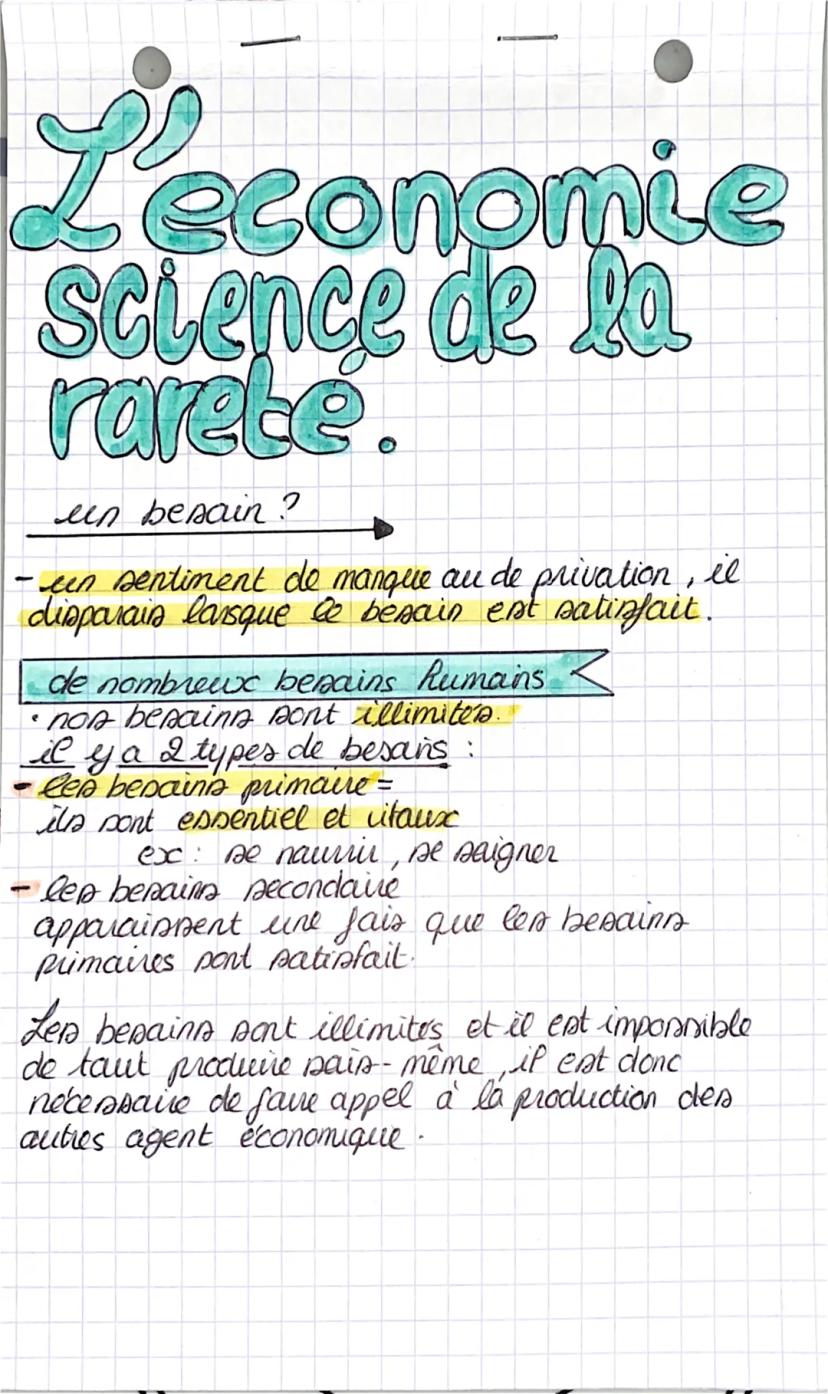 L'économie
science de la
rareté.
un besoin ?
- un sentiment de manque ou de privation, il
disparais lorsque le besoin est satisfait.
de nombreux besoins humains
• nos besoins sont illimités.
il y a 2 types de besoins :
- les besoins primaire =
ils sont essentiel et vitaux
ex : se nourrir, se soigner
- les besoins secondaire
apparaissent une fois que les besoins
primaires sont satisfait.
Les besoins sont illimités et il est impossible
de tout produire sois-même, il est donc
nécessaire de faire appel à la production des
autres agent économique.